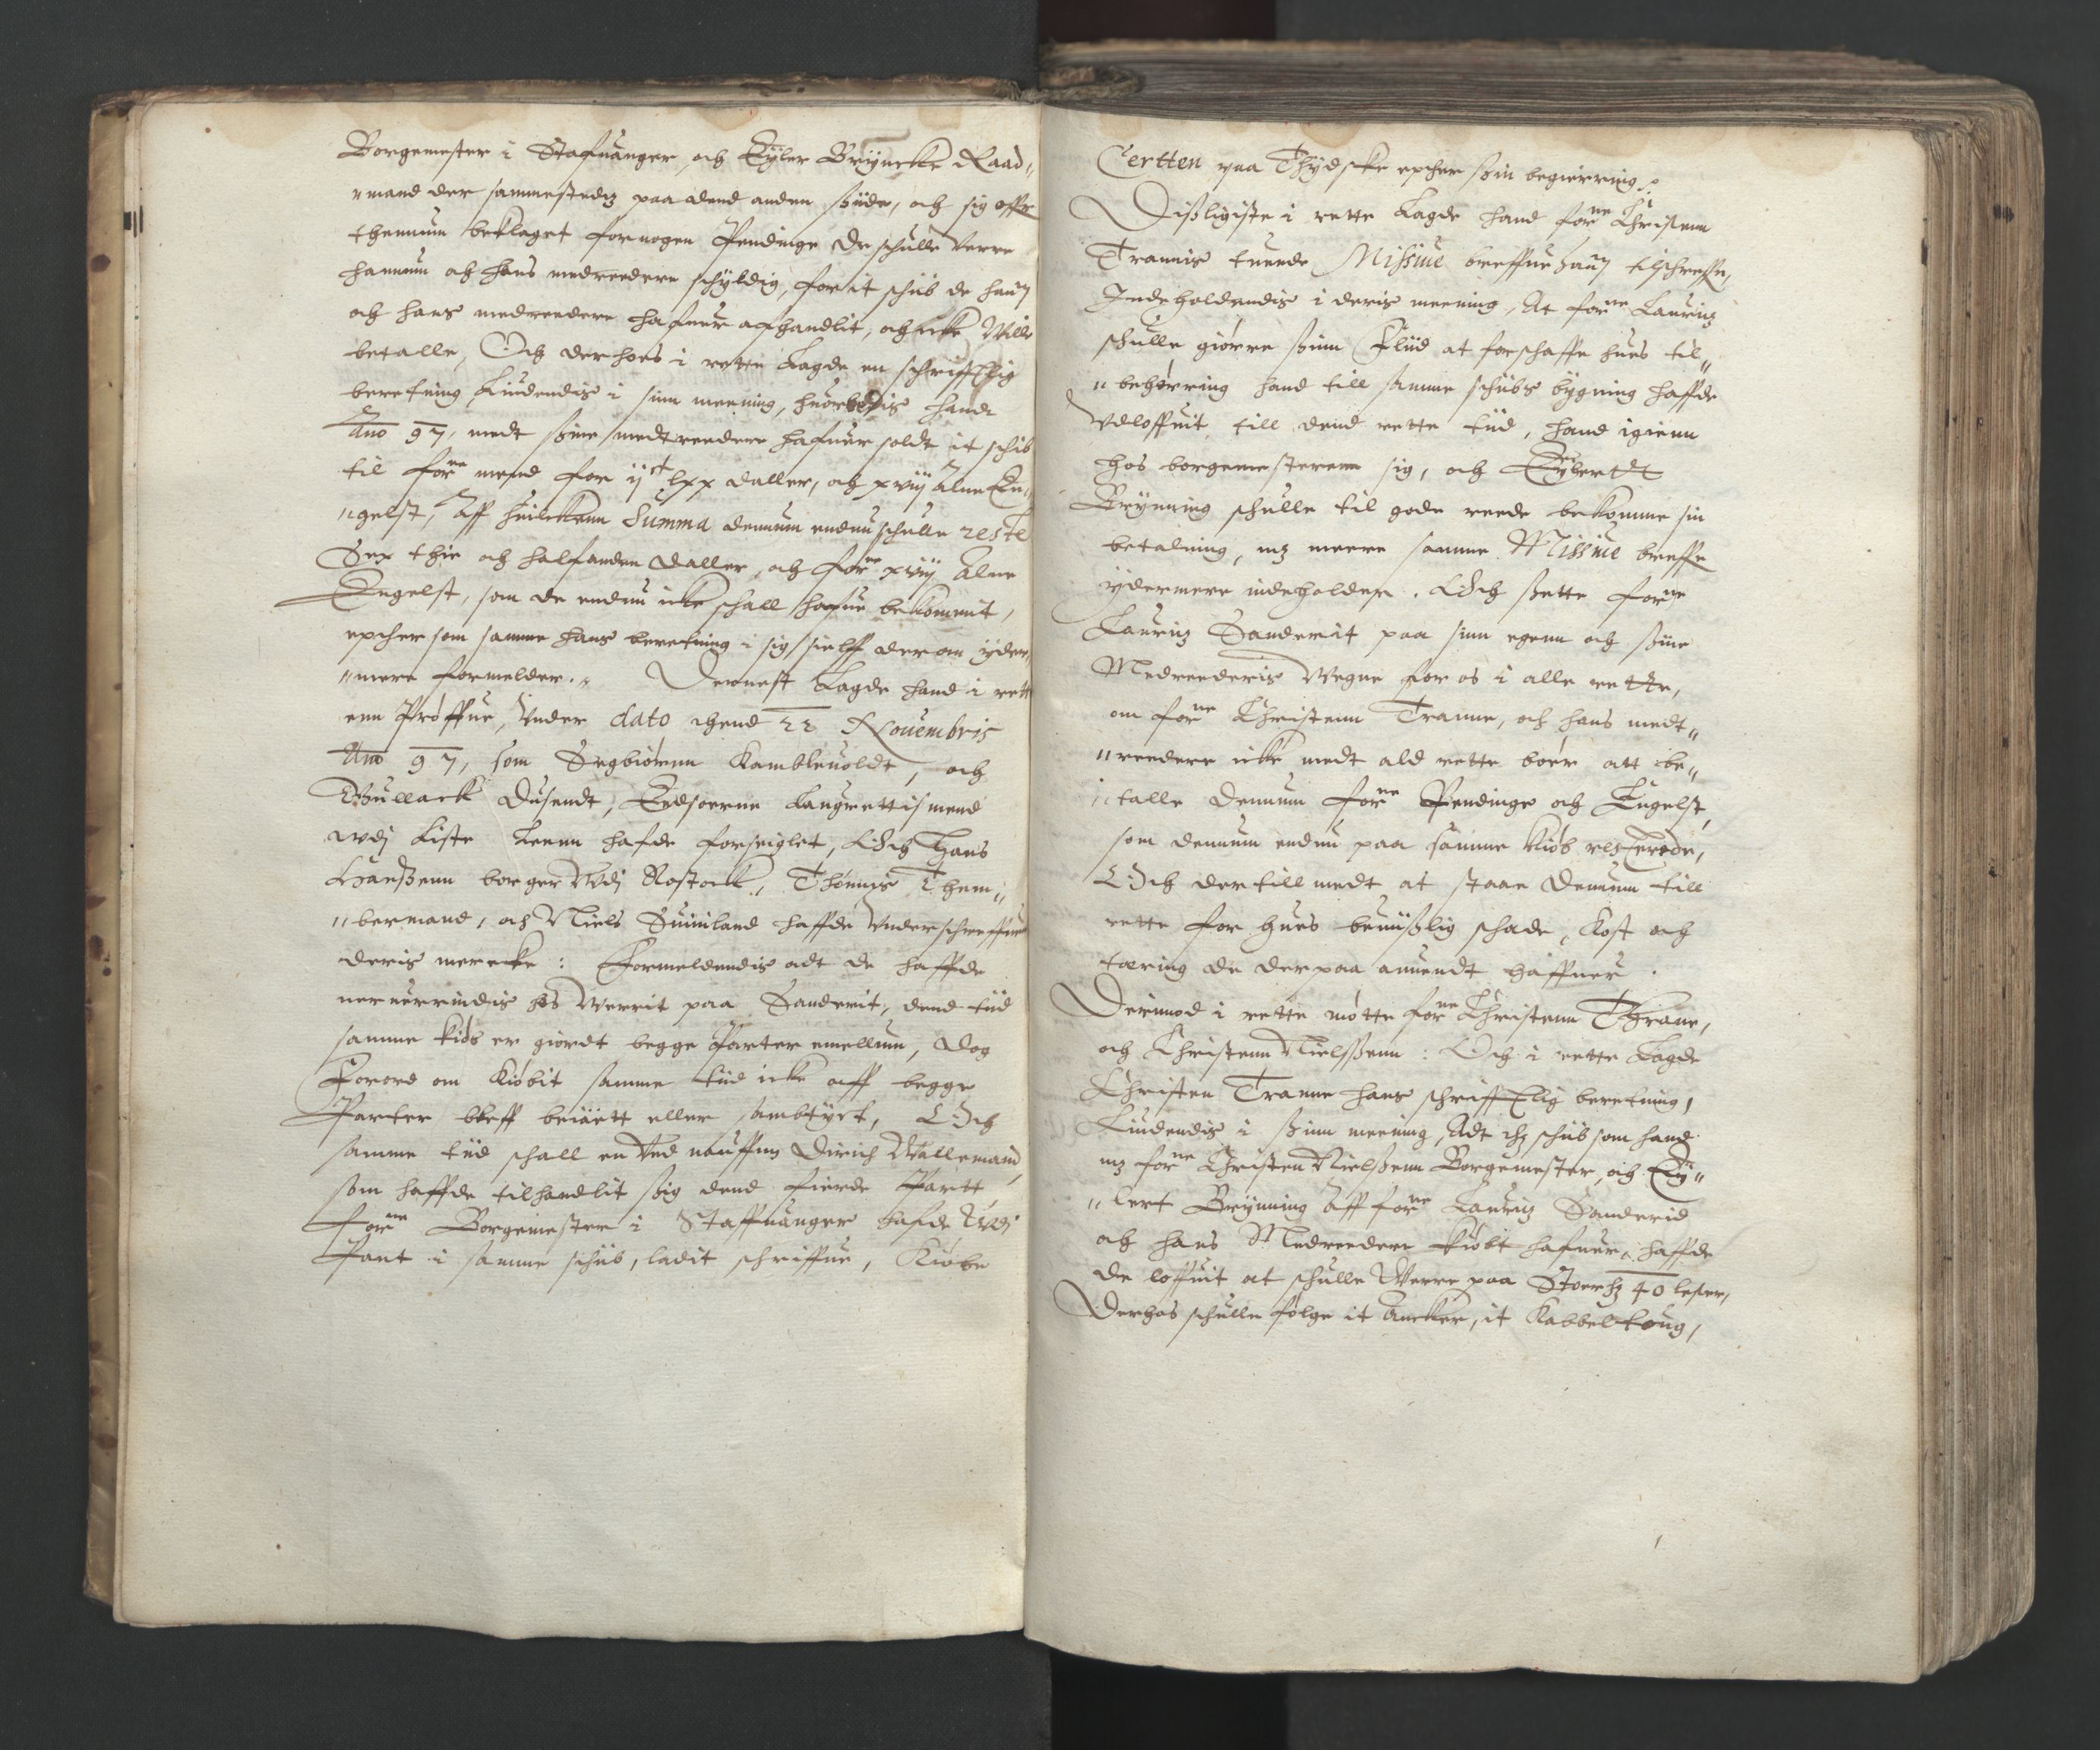 Borgemester i Stafuanger, och Eyler Brÿncke Raad„
„mand der sammestedz paa dend anden ßiide, och sig offr
thennum beklaget for nogen Pendinge de schulle Verre
hannum och hans medreedere schÿldig, for it schib de hanz
och hans medreedere hafuer afhandlit, och icke Wille
betalle, Och der hoes i rette Lagde en schrifftlig
beretning Liudendis i sinn meening, huorledis hand
Ano 97, medt ßine medtreedere hafuer soldt it schib
til forne mend for ijct lxx daller, och xviij alne En„
„gelst, Aff huilckenn Summa dennum endnu schulle reste
Sex thie och halfanden daller, och forne xviij Alne
Engelst, som de endnu icke schall hafue bekommit,
epther som samme hans beretning i sig sielff der om ÿder„
„mere formelder. Dernest Lagde hand i rett
enn Prøffue, Vnder dato thend 22 Nouembris
Ano 97, som Segbiørnn Kambleuoldt, och
Gullack Dusendt, Eedsorne Laugrettismend
wdj Liste Leenn hafde forseiglet, Och Hans
Hanßenn borger Wdj Rostock, Thønnis Them„
„bermand, och Niels Suiniland haffde Vnderschreffuit
deris mercke: Formeldendis adt de haffde
neruerrindis hos Werrit paa Sanderit, dend tiid
samme kiøb er giordt begge Parter emellum, dog
Forord om kiøbit samme tiid icke aff begge
Parter bleff beiaett eller sambtÿct, Och
samme tiid schall en Ved nauffnn Dirich Wallemand,
som haffde tilhandlit ßig dend fierde Partt
forne Borgemester i Staffuanger hafde Wdj
Part i samme schib, ladit schriffue, Kiøbe
Certten paa Thÿdscke epther ßin begierring.
Dißligiste i rette Lagde hand forne Christenn
Trannis tuende Missiue breffue hanz tilschreffn,
Indeholdendis i deris meening, At forne Lauritz
schulle giørre ßinn Fliid at forschaffe hues til„
„behørring hand till samme schibs bÿgning haffde
Vdloffuit till dend rette tiid, hand igienn
hos borgemesterenn sig, och Eÿlertt
Brÿnning schulle til gode reede bekomme sin
betalning, mz meere samme Missiue breffe
ÿdermere indeholder. Och ßette forne
Lauritz Sanderit paa sinn egenn och ßine
Medreederis Wegne for os i alle rette,
om forne Christenn Tranne, och hans medt„
„reedere icke medt ald rette bøer att be„
„talle dennum forne Pendinge och Engelst,
som dennum endnu paa samme kiøb resterede,
Och der till medt at staae dennum till
rette for hues beuiißlig schade, Kost och
tæring de der paa anuendt haffuer.
Derimod i rette møtte forne Christenn Thrane,
och Christenn Nielßenn: Och i rette Lagde
Christen Tranne hans schrifftlig beretning,
Liudendis i ßinn meening, Adt thz schib som hand
mz forne Christen Nielßenn Borgemester, och Eÿ„
„lert Brÿnning Aff forne Lauritz Sanderid
och hans Medreedere kiøbt hafuer, haffde
de loffuit at schulle Werre paa Storchz 40 lester,
Derhos schulle følge it Ancker, it Kabbeltoug,